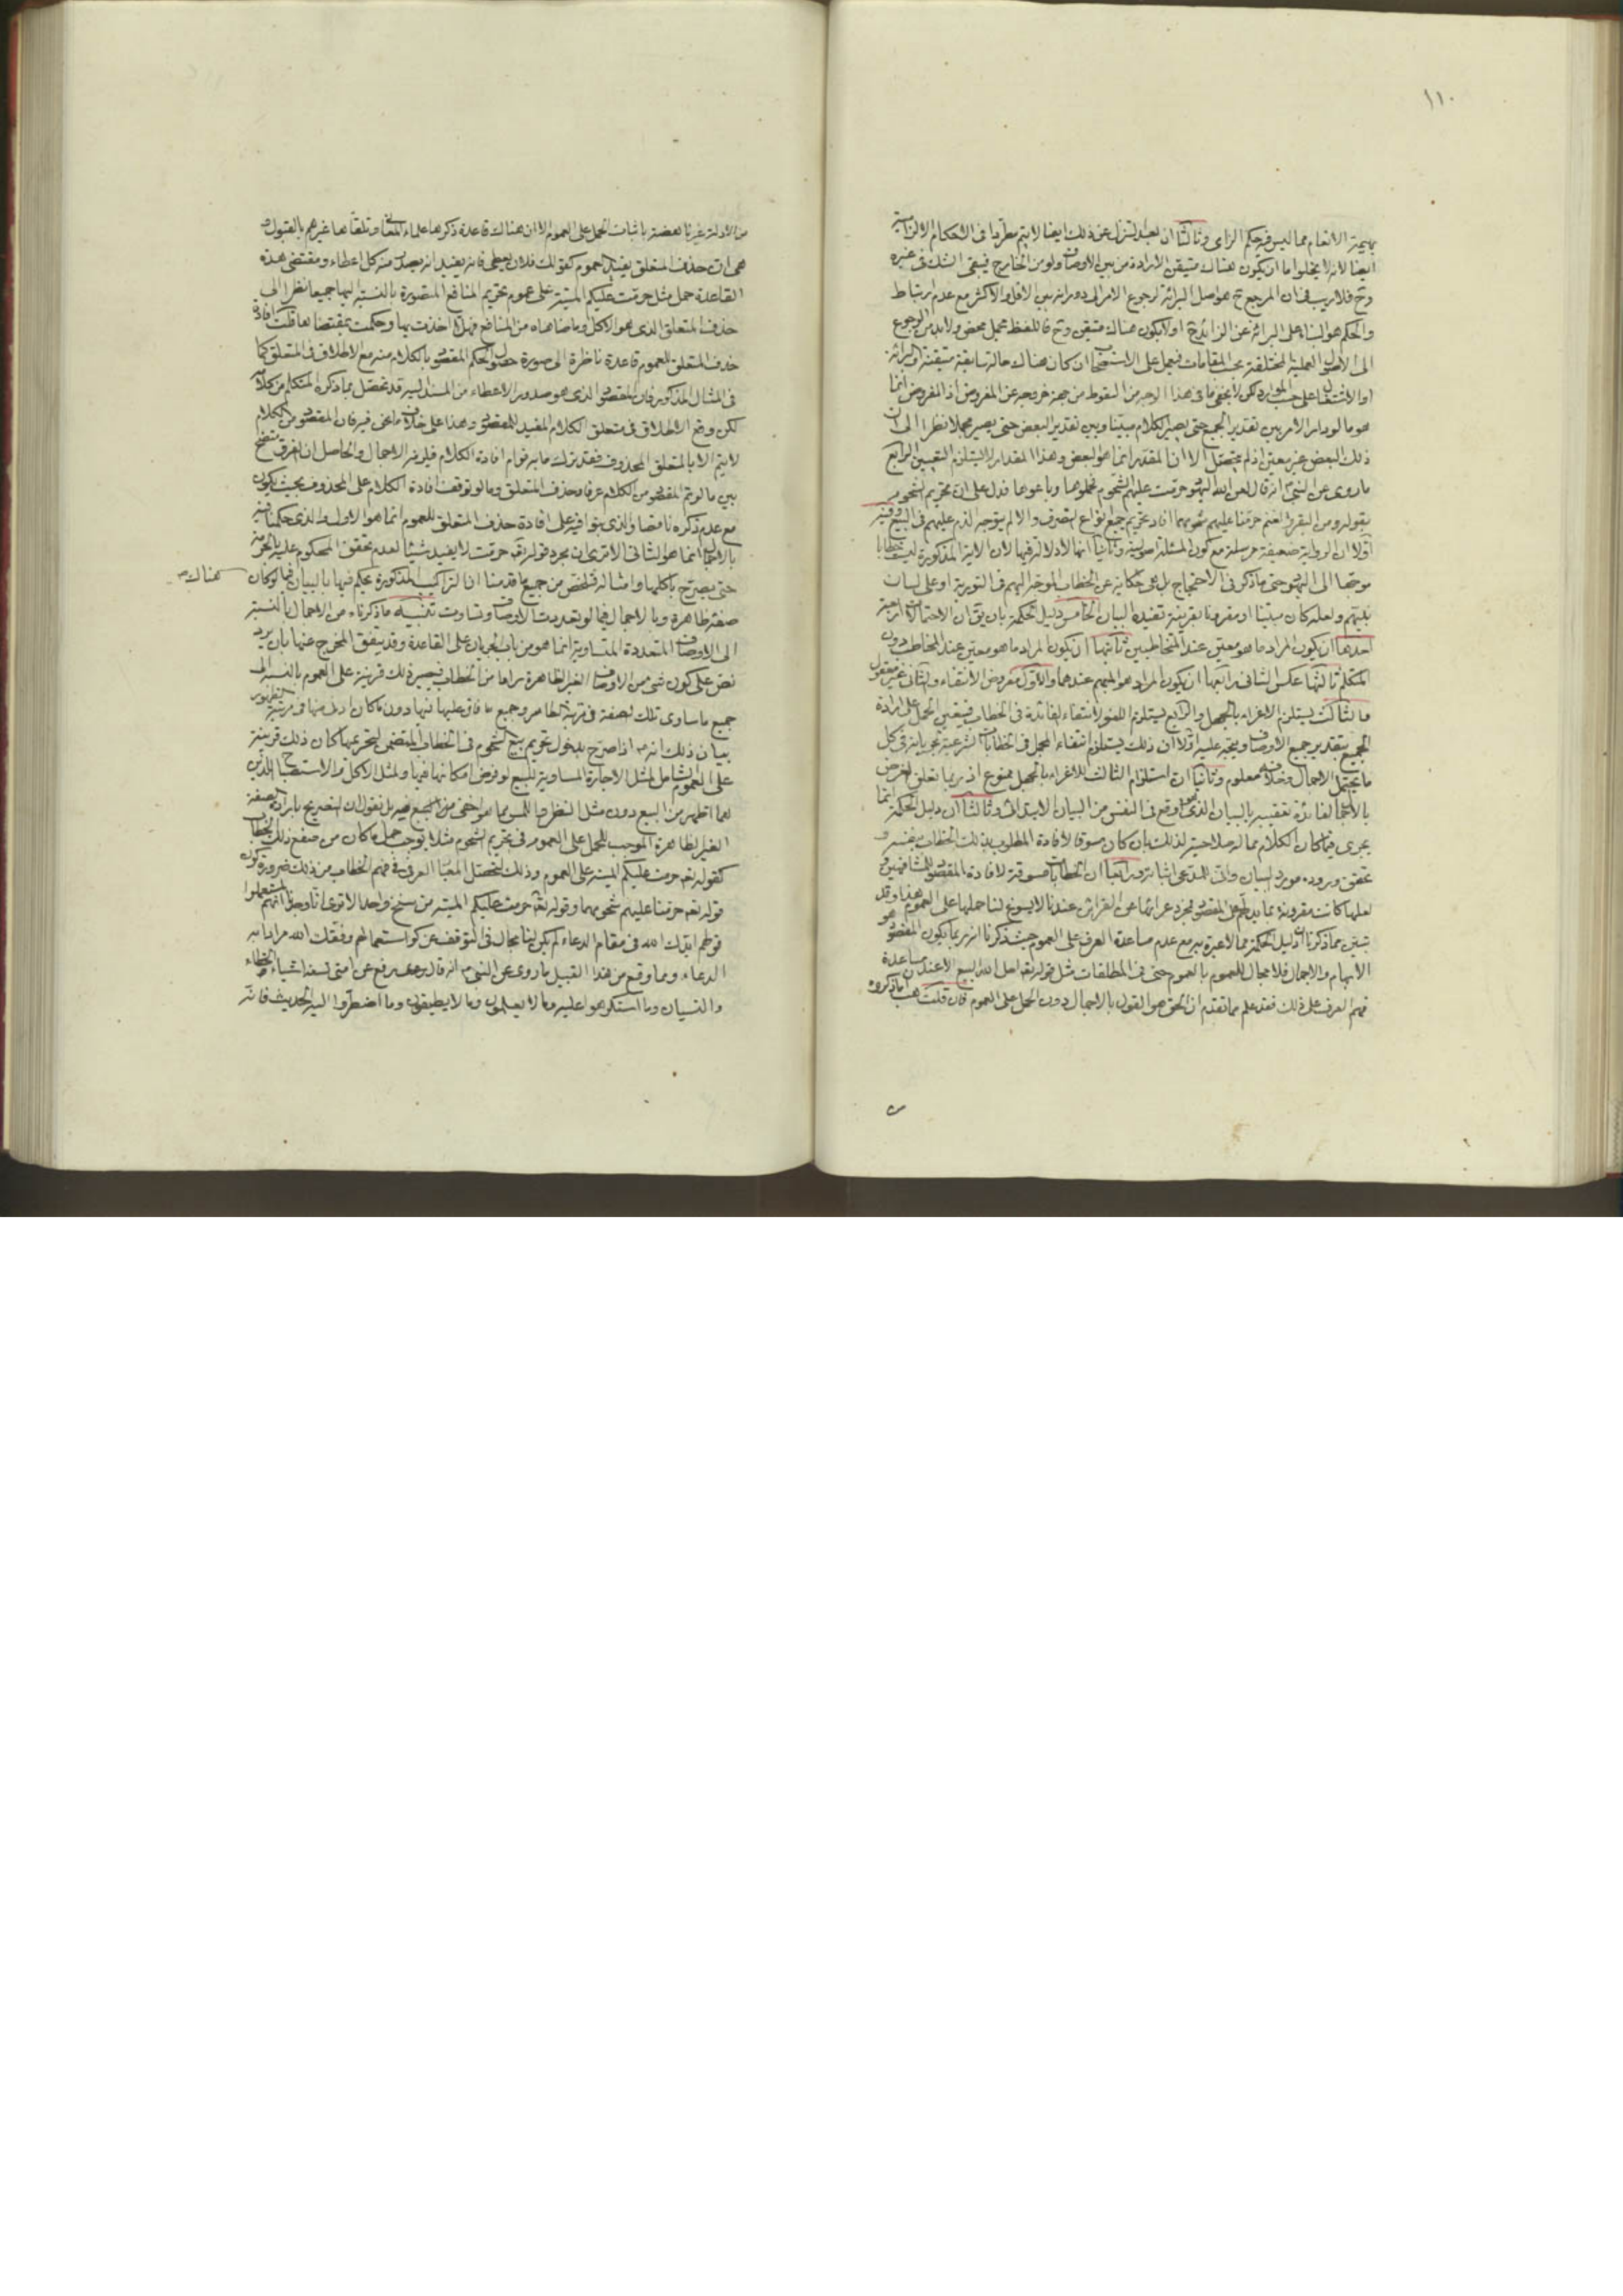 ١١٠
بهيمة الانعام مما ليس فيه حكم الزاى وثالثا ان بعد التنزل عن ذلك ايضا لا يتم مطردا فى الاحكام الالزامية
ايضا لانه لا يخلوا ما ان يكون هناك متيقن الارادة من بين الاوصاف ولو من الخارج فيبقى الشك فى غيره
وح فلا ريب فى ان المرجع ح هو اصل البرائة لرجوع الامر الى دورانه بين الاقل والاكثر مع عدم ارتباط
والحكم هو البناء على البرائة عن الزائد او لا يكون هناك متيقن وح فاللفظ مجمل محض ولا بد من الرجوع
الى الاصول العملية المختلفة بحسب المقامات فيعمل على الاستصحاب ان كان هناك حالة سابقة متيقنة او البرائة
او الاشتغال على حسب الموارد لكن لا يخفى ما فى هذا الوجه من السقوط من جهة خروجه عن المفروض اذ المفروض انما
هو ما لو دار الامر بين تقدير الجميع حتى يصير الكلام مبينا وبين تقدير البعض حتى يصير مجملا نظرا الى ان
ذلك البعض غير معين اذ لم يتحصل الا ان المقدر انما هو البعض وهذا المقدار لا يستلزم التعيين الرابع
ما روى عن النبى انه قال لعن الله اليهود حرمت عليهم الشحوم فجملوها وباعوها فدل على ان تحريم الشحوم
بقوله ومن البقر والغنم حرمنا عليهم شحومهما افاد تحريم جميع انواع التصرف والا لم يتوجه الذم عليهم فى البيع وفيه
اولا ان الرواية ضعيفة مرسلة مع كون المسئلة اصولية وثانيا انها لا دلالة فيها لان الاية المذكورة ليست خطابا
موجها الى اليهود حتى ما ذكر فى الاحتجاج بل هى حكاية عن الخطاب الموجه اليهم فى التورية او على لسان
نبيهم ولعله كان مبينا او مقرونا بقرينة تفيده البيان الخامس دليل الحكمة بان يق ان الاحتمالات اربعة
احدها ان يكون المراد ما هو معين عند المتخاطبين ثانيها ان يكون المراد ما هو معين عند المخاطب دون
المتكلم ثالثها عكس الثانى رابعها ان يكون المراد هو المبهم عندهما والاول مفروض الانتفاء والثانى غير معقول
والثالث يستلزم الاغراء بالجهل والرابع يستلزم اللغو لانتفاء الفائدة فى الخطاب فيتعين الحمل على ارادة
الجميع بتقدير جميع الاوصاف ويتجه عليه اولا ان ذلك يستلزم انتفاء المجمل فى الخطابات الشرعية لجريانه فى كل
ما يحتمل الاجمال وخلافه معلوم وثانيا ان استلزام الثالث للاغراء بالجهل ممنوع اذ ربما تعلق الغرض
بالاجمال لفائدة تعقيبه بالبيان الذى هو اوقع فى النفس من البيان الابتدائى وثالثا ان دليل الحكمة انما
يجرى فيما كان الكلام مما له صلاحية لذلك بان كان مسوقا لافادة المطلوب بذلك الخطاب بنفسه و
تحقق وروده مورد البيان وانى للمدعى اثباته ورابعا ان الخطابات مسوقة لافادة المقصود للمشافهين و
لعلها كانت مقرونة بما يدلهم على المقصود فمجرد عرائها عن القرائن عندنا لا يسوغ لنا حملها على العموم هذا وقد
تبين مما ذكرنا ان دليل الحكمة مما لا عبرة به مع عدم مساعدة العرف على العموم حيث ذكرنا انه ربما يكون المقصود هو
الابهام والاجمال فلا مجال للعموم بالعموم حتى فى المطلقات مثل قوله تعالى احل الله البيع الا عند مساعدة
فهم العرف على ذلك فقد علم مما تقدم ان الحق هو القول بالاجمال دون الحمل على العموم فان قلت هب ان ما ذكروه
من الادلة غير ناهضة باثبات الحمل على العموم الا ان هناك قاعدة ذكرها علماء المعانى وتلقاها غيرهم بالقبول و
هى ان حذف المتعلق يفيد العموم كقولك فلان يعطى فانه يفيد انه يصدر منه كل اعطاء ومقتضى هذه
القاعدة حمل مثل حرمت عليكم الميتة على عموم تحريم المنافع المتصورة بالنسبة اليها جميعا نظرا الى
حذف المتعلق الذى هو الاكل وما ضاهاه من المنافع فهلا اخذت بها وحكمت بمقتضاها قلت افادة
حذف المتعلق للعموم قاعدة ناظرة الى صورة حصول الحكم المقصود بالكلام منه مع الاطلاق فى المتعلق كما
فى المثال المذكور فان المقصود الذى هو صدور الاعطاء من المسند اليه قد تحصل بما ذكره المتكلم من كلامه
لكن وقع الاطلاق فى متعلق الكلام المفيد للمقصود وهذا على خلاف ما نحن فيه فان المقصود من الكلام
لا يتم الا بالمتعلق المحذوف فعند ترك ما به قوام افادة الكلام فيلزمه الاجمال والحاصل ان الفرق متضح
بين ما لو تم المقصود من الكلام عرفا وحذف المتعلق وما لو توقف افادة الكلام على المحذوف بحيث يكون
مع عدم ذكره ناقصا والذى بنوا فيه على افادة حذف المتعلق للعموم انما هو الاول والذى حكمنا فيه
بالاجمال انما هو الثانى الا ترى ان مجرد قوله تعالى حرمت لا يفيد شيئا لعدم تحقق المحكوم عليه بالحرمة
حتى يصرح باكلها وامثاله فتلخص من جميع ما قدمنا ان التراكيب المذكورة يحكم فيها بالبيان فيما لو كان هناك
صفة ظاهرة وبالاجمال فيما لو تعددت الاوصاف وتساوت تنبيه ما ذكرناه من الاجمال بالنسبة
الى الاوصاف المتعددة المتساوية انما هو من باب الجريان على القاعدة وقد يتفق المخرج عنها بان يرد
نص على كون شىء من الاوصاف الغير الظاهرة مرادا من الخطاب فيصير ذلك قرينة على العموم بالنسبة الى
جميع ما ساوى تلك الصفة فى مرتبة الظاهر وجميع ما فاق عليها فيها دون ما كان ادنى منها فى مرتبة الظهور
بيان ذلك انه اذا صرح بدخول تحريم بيع الشحوم فى الخطاب المتضمن لتحريمها كان ذلك قرينة
على العموم الشامل لمثل الاجارة المساوية للبيع لو فرض امكانها فيها ولمثل الاكل والاستصباح الذين
هما اظهر من البيع دون مثل النظر واللمس مما هو اخفى من البيع بل نقول ان التصريح بارادة الصفة
الغير الظاهرة الموجب للحمل على العموم فى تحريم الشحوم مثلا يوجب حمل ما كان من صقع ذلك الخطاب
كقوله تعالى حرمت عليكم الميتة على العموم وذلك لتحصل المعيار العرفى فى فهم الخطاب من ذلك ضرورة كون
قوله تعالى حرمنا عليهم شحومهما وقوله تعالى حرمت عليكم الميتة من سنخ واحد الا ترى انا وجدنا انهم استعملوا
قولهم ايدك الله فى مقام الدعاء لم يكن لنا مجال فى التوقف عن كون استعمالهم وفقك الله مرادا به
الدعاء ومما وقع من هذا القبيل ما روى عن النبى انه قال رفع عن امتى تسعة اشياء الخطاء
والنسيان وما استكرهوا عليه وما لا يعلمون وما لا يطيقون وما اضطروا اليه الحديث فانه